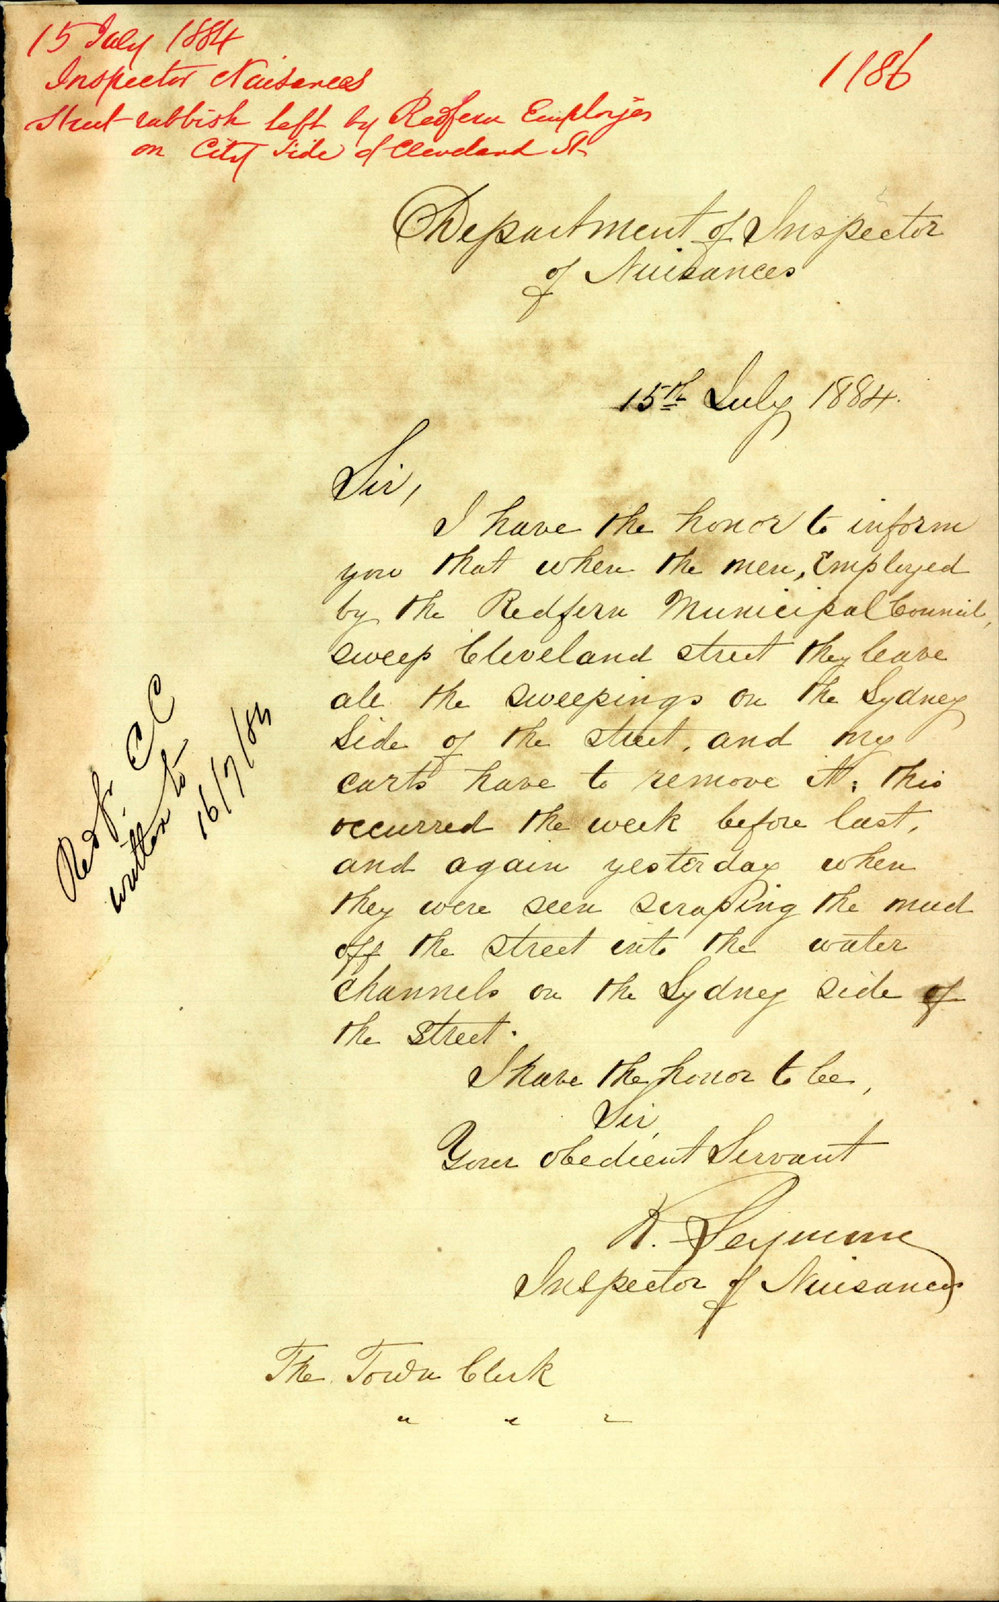 15 July 1884
Inspector Nuisances
Street rubbish left by Redfern Employés
on City side of Cleveland St
1186
Department of Inspector
of Nuisances
15th July 1884.
Sir,
I have the honor to inform
you that when the men, Employed
by the Redfern Municipal Council,
sweep Cleveland street they leave
all the sweepings on the Sydney
side of the street, and my
carts have to remove it; this
occurred the week before last,
and again yesterday when
they were seen scraping the mud
off the street into the water
channels on the Sydney side of
the street.
I have the honor to be,
Sir,
Your obedient Servant
R. Seymour
Inspector of Nuisances
The Town Clerk
" " "
Redf. CC
written to
16/7/84